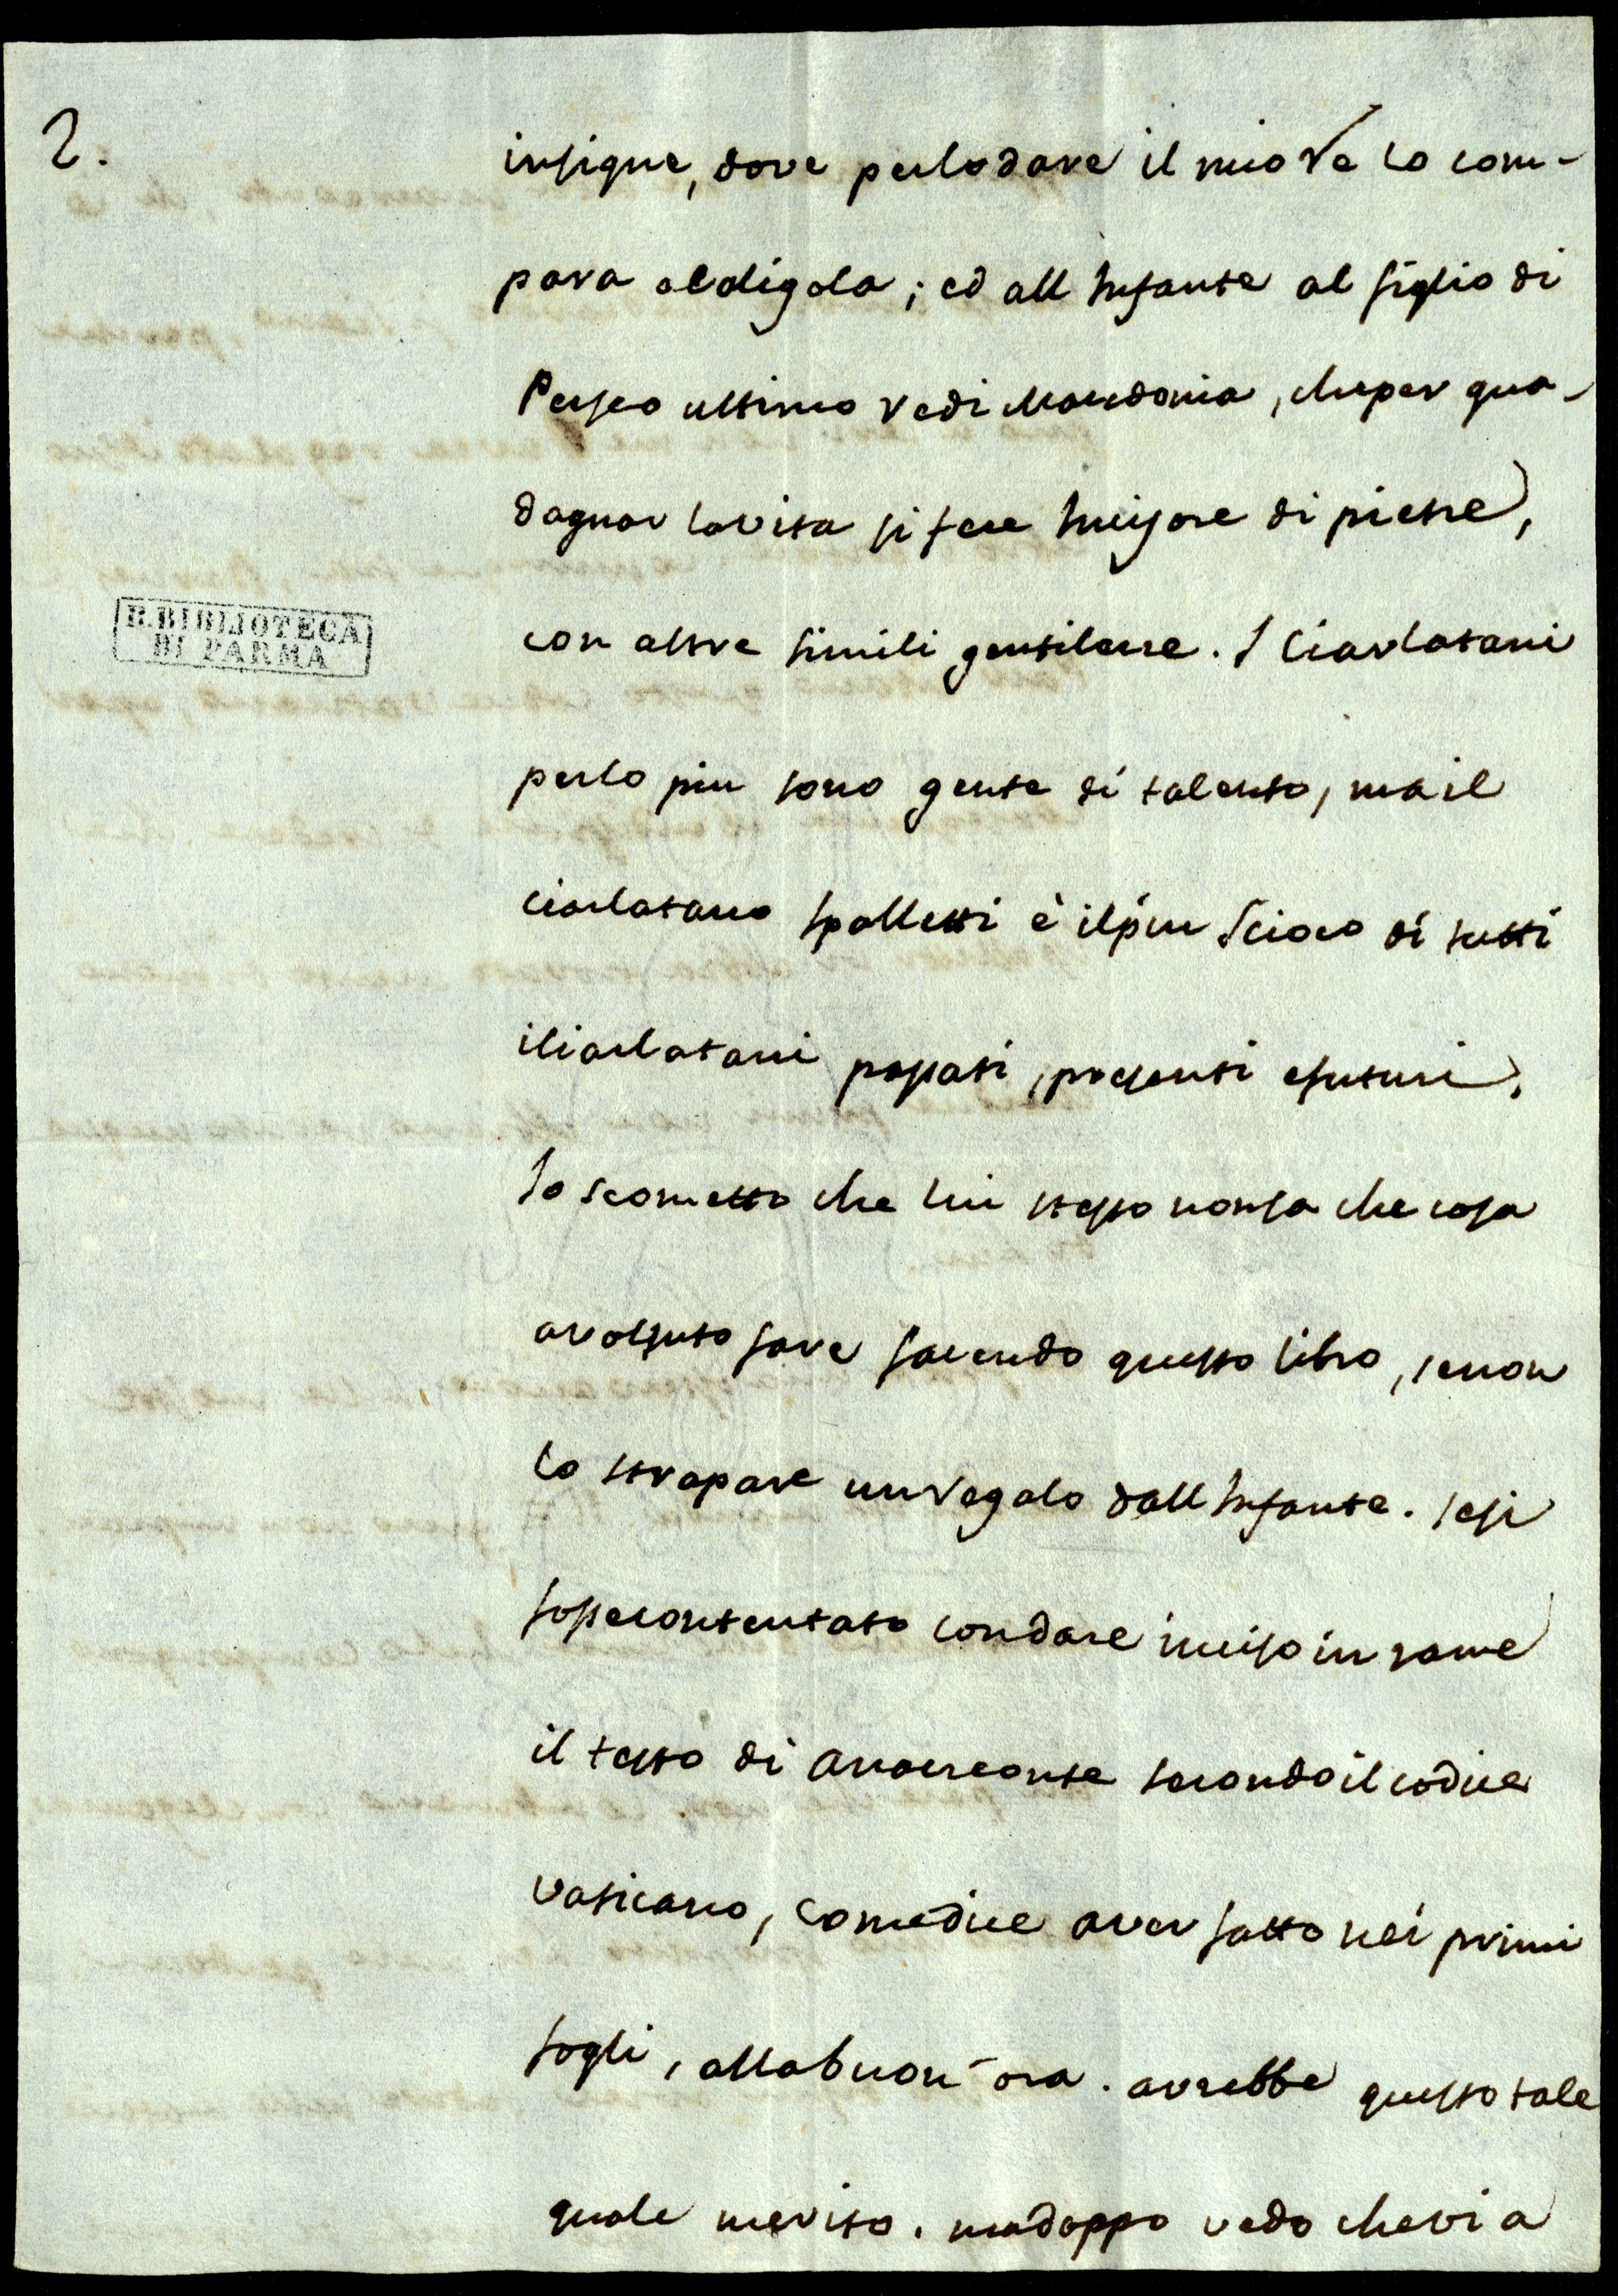 2.
insigne, dove per lodare il mio Re lo com-
para al digola; ed all Infante al figlio di
Perseo ultimo re di Macedonia, che per gua-
dagnar la vita si fece Incisore di pietre,
con altre simili gentilezze. I Ciarlatani
per lo piu sono gente di talento, ma il
ciarlatano Spalletti è il piu Scioco di tutti
i Ciarlatani passati, presenti e futuri,
Io scometto che lui stesso non sa che cosa
a volsuto fare facendo questo libro, se non
lo strapare un regalo dall Infante. se si
fosse contentato con dare inciso in rame
il testo di Anacreonte secondo il codice
vaticano, come dice aver fatto nei primi
fogli, alla buon'ora. avrebbe questo tale
quale merito. ma doppo vedo che vi a
R. BIBLIOTECA
DI PARMA